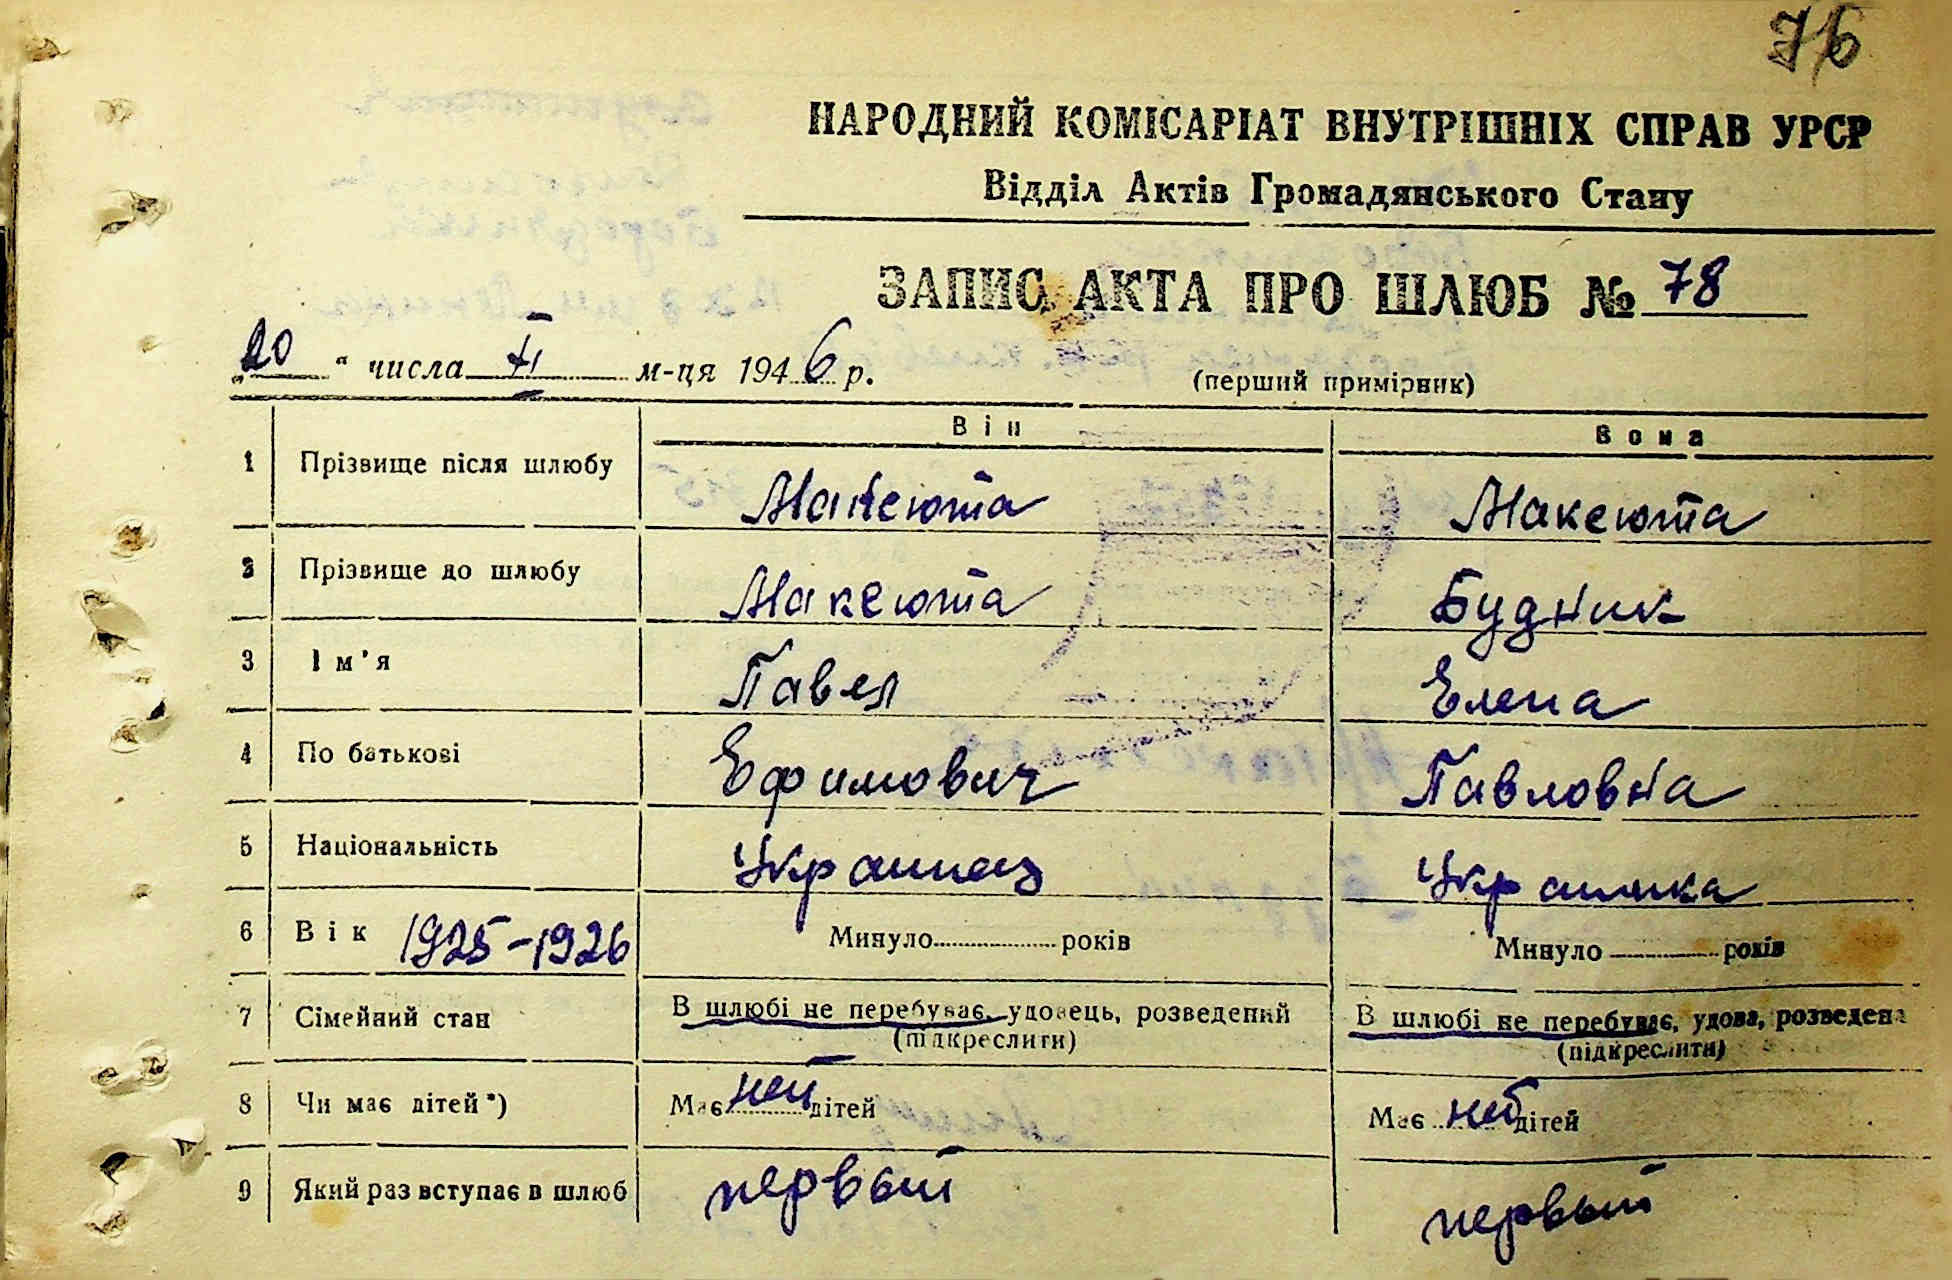 76
НАРОДНИЙ КОМІСАРІАТ ВНУТРІШНІХ СПРАВ УРСР
Відділ Актів Громадянського Стану
ЗАПИС АКТА ПРО ШЛЮБ № 78
„20“ числа II м-ця 1946 р.
(перший примірник)
Він Вона
1 Прізвище після шлюбу Максюта Максюта
2 Прізвище до шлюбу Максюта Будник
3 Ім'я Павел Елена
4 По батькові Ефимович Павловна
5 Національність Украинец Украинка
6 Вік 1925-1926 Минуло років Минуло років
7 Сімейний стан В шлюбі не перебуває, удовець, розведений В шлюбі не перебуває, удова, розведена
(підкреслити) (підкреслити)
8 Чи має дітей*) Має нет дітей Має нет дітей
9 Який раз вступає в шлюб первый первый